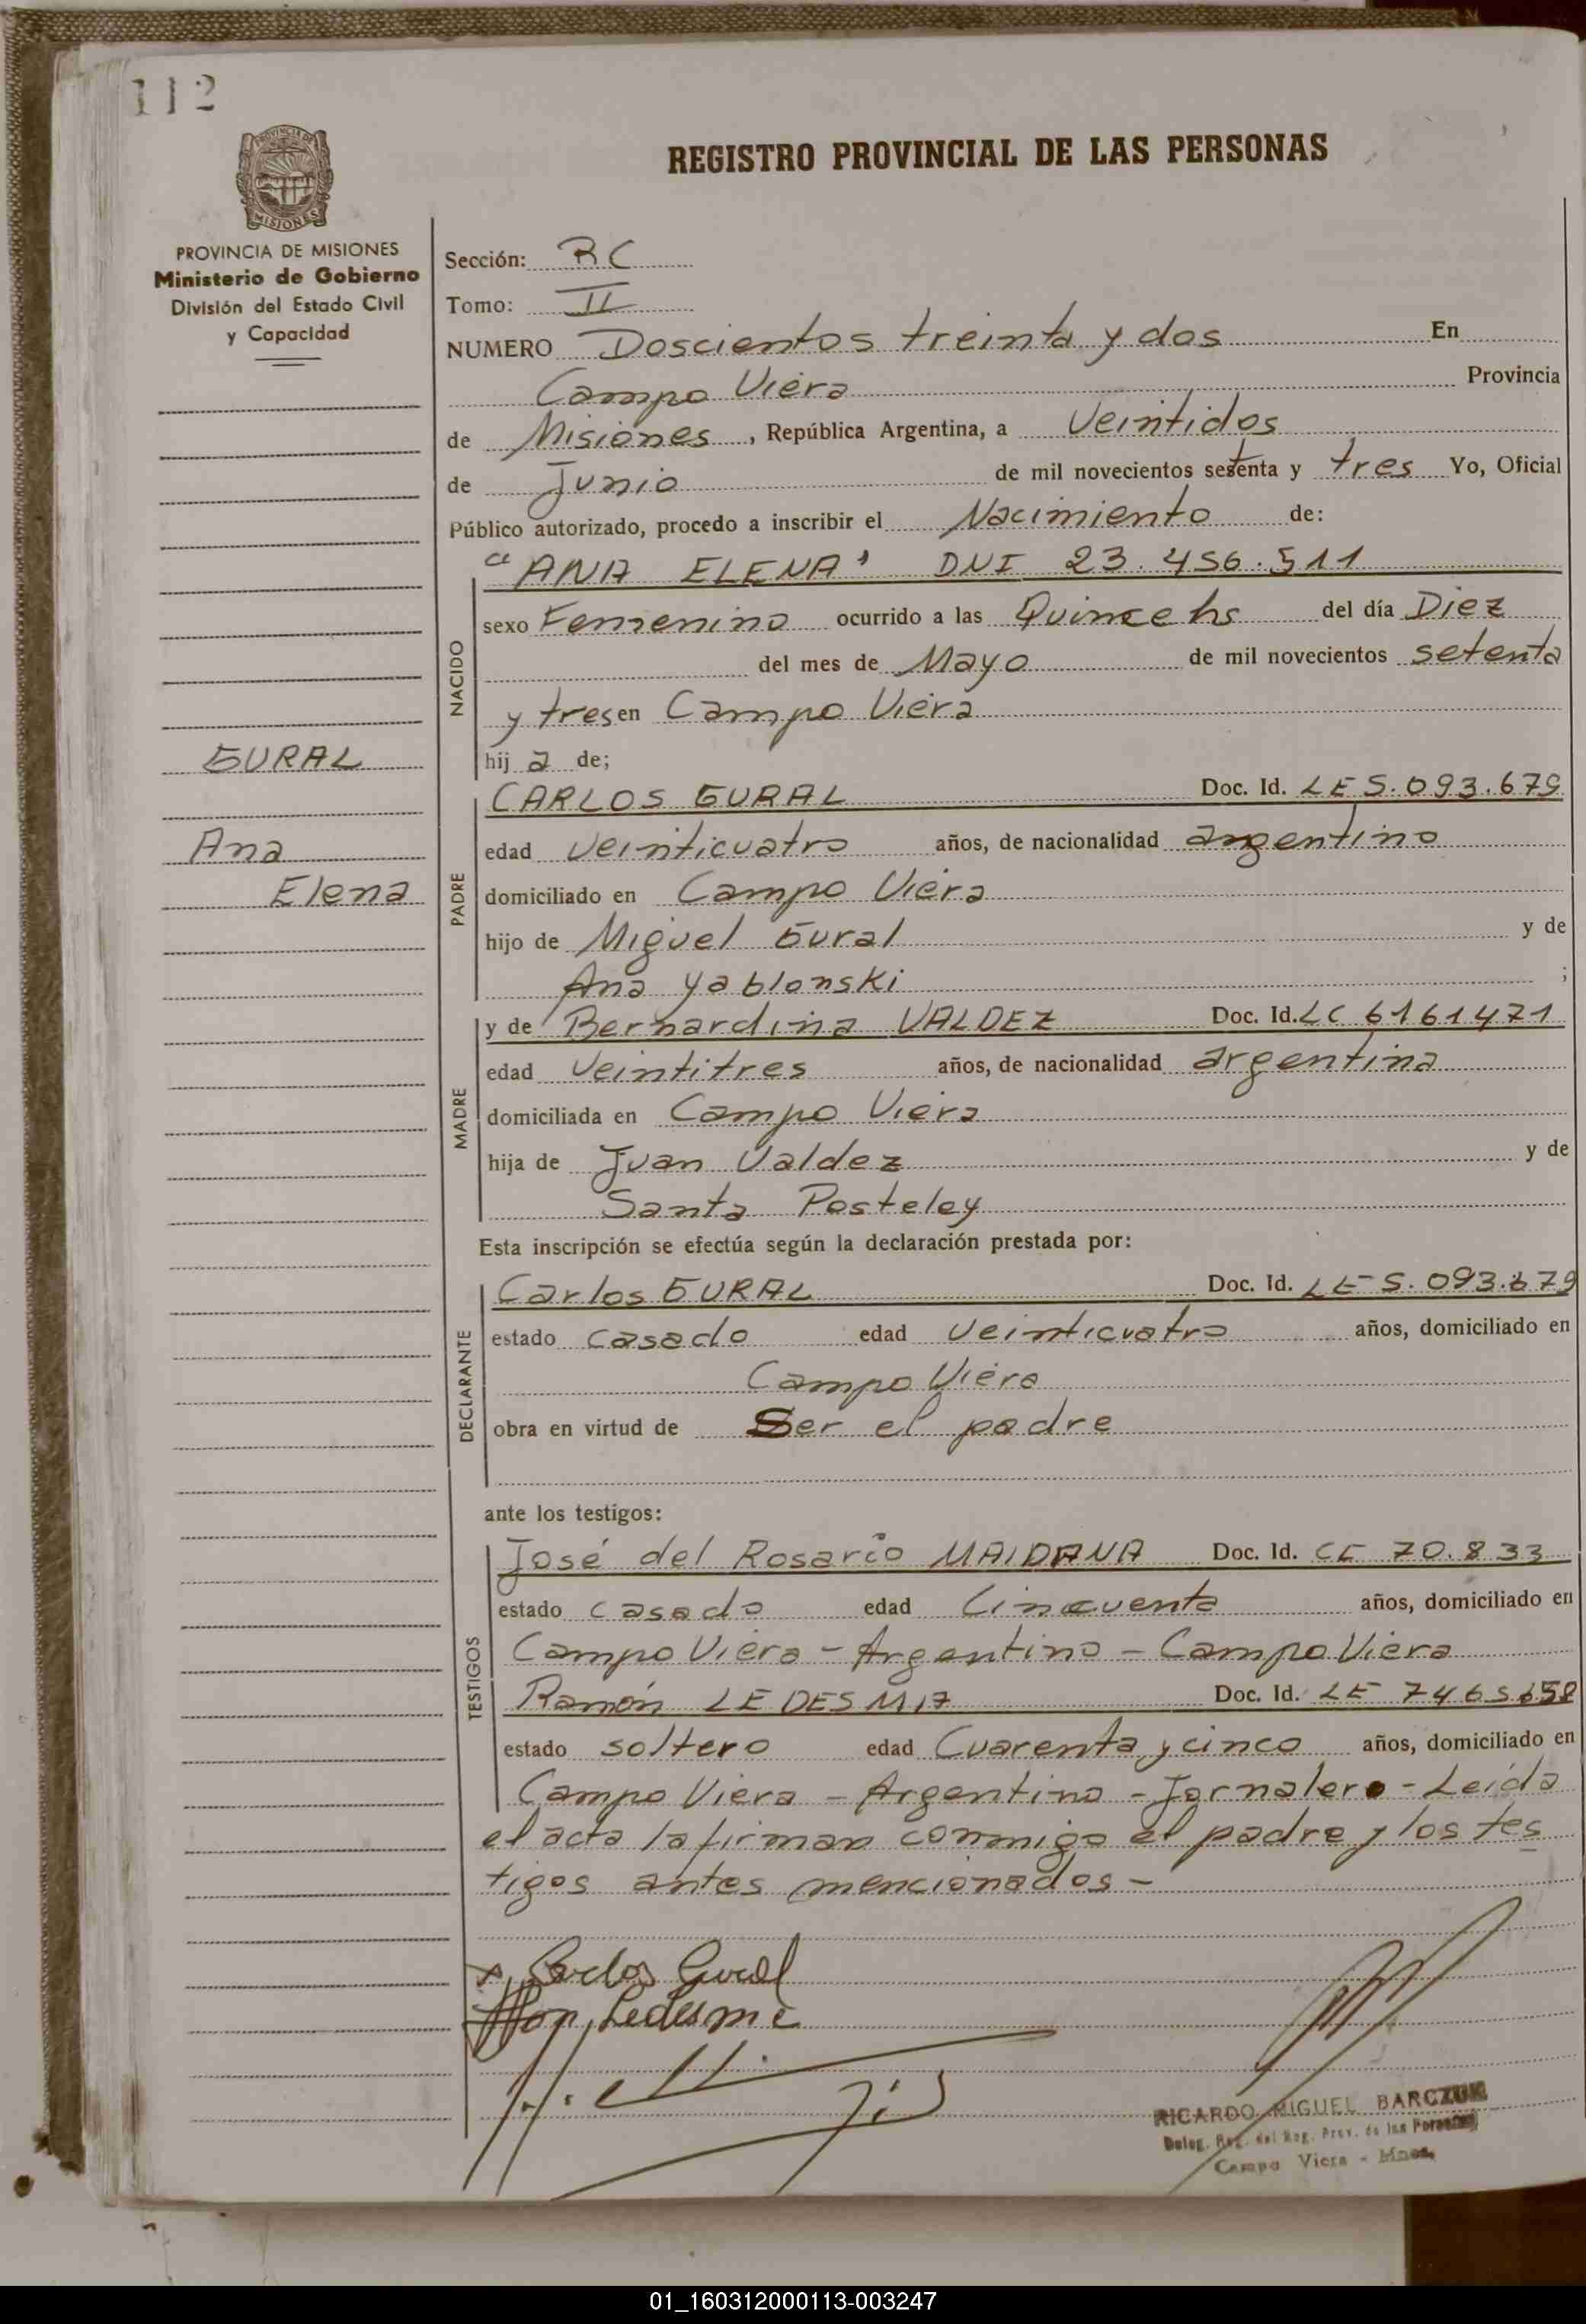 112
REGISTRO PROVINCIAL DE LAS PERSONAS
MISIONES
PROVINCIA DE MISIONES
Ministerio de Gobierno
División del Estado Civil
y Capacidad
Sección: RC
Tomo: II
NUMERO Doscientos treinta y dos En
Campo Viera Provincia
de Misiones, República Argentina, a Veintidos
de Junio de mil novecientos setenta y tres Yo, Oficial
Público autorizado, procedo a inscribir el Nacimiento de:
"ANA ELENA" DNI 23.456.511
NACIDO
sexo Femenino ocurrido a las Quince hs del día Diez
del mes de Mayo de mil novecientos setenta
y tres en Campo Viera
hija de;
GURAL
Ana
Elena
PADRE
CARLOS GURAL Doc. Id. LE 5.093.679
edad Veinticuatro años, de nacionalidad argentino
domiciliado en Campo Viera
hijo de Miguel Gural y de
Ana Yablonski ;
MADRE
y de Bernardina VALDEZ Doc. Id. LC 6161471
edad Veintitres años, de nacionalidad argentina
domiciliada en Campo Viera
hija de Juan Valdez y de
Santa Posteley
Esta inscripción se efectúa según la declaración prestada por:
DECLARANTE
Carlos GURAL Doc. Id. LE 5.093.679
estado casado edad Veinticuatro años, domiciliado en
Campo Viera
obra en virtud de Ser el padre
ante los testigos:
TESTIGOS
José del Rosario MAIDANA Doc. Id. CE 70.833
estado casado edad Cincuenta años, domiciliado en
Campo Viera - Argentino - Campo Viera
Ramón LEDESMA Doc. Id. LE 7465658
estado soltero edad Cuarenta y cinco años, domiciliado en
Campo Viera - Argentino - Jornalero - Leída
el acta la firman conmigo el padre y los tes
tigos antes mencionados -
x Carlos Gural
Ledesma
RICARDO MIGUEL BARCZUK
Deleg. Reg. del Reg. Prov. de las Personas
Campo Viera - Mnes.
01_160312000113-003247